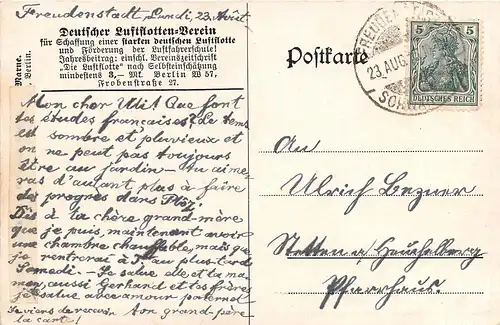 Freudenstadt Lundi, 23 Août
Deutscher Luftflotten-Verein
für Schaffung einer starken deutschen Luftflotte
und Förderung der Luftfahrerschule!
Jahresbeitrag: einschl. Vereinszeitschrift
„Die Luftflotte" nach Selbsteinschätzung
mindestens 3,— Mk. Berlin W 57,
Frobenstraße 27.
Marne.
Berlin.
Mon cher Ulli! Que font
tes études françaises? Le temps
est sombre et pluvieux et
on ne peut pas toujours
être au jardin — tu aime-
ras d'autant plus à faire
des progrès dans
Dis à la chère grand-mère
que je puis, maintenant avoir
une chambre chauffable, mais que
je rentrerai à au plus tard
Samedi. — Je salue elle et ta ma-
man, aussi Gerhard et tes frères
je salue avec amour paternel
Je viens de recevoir ton grand-père
la carte!
Postkarte
23. AUG
SCHW
5 5
DEUTSCHES REICH
An
Ulrich Bezner
Stetten a Heuchelberg
Pfarrhaus.